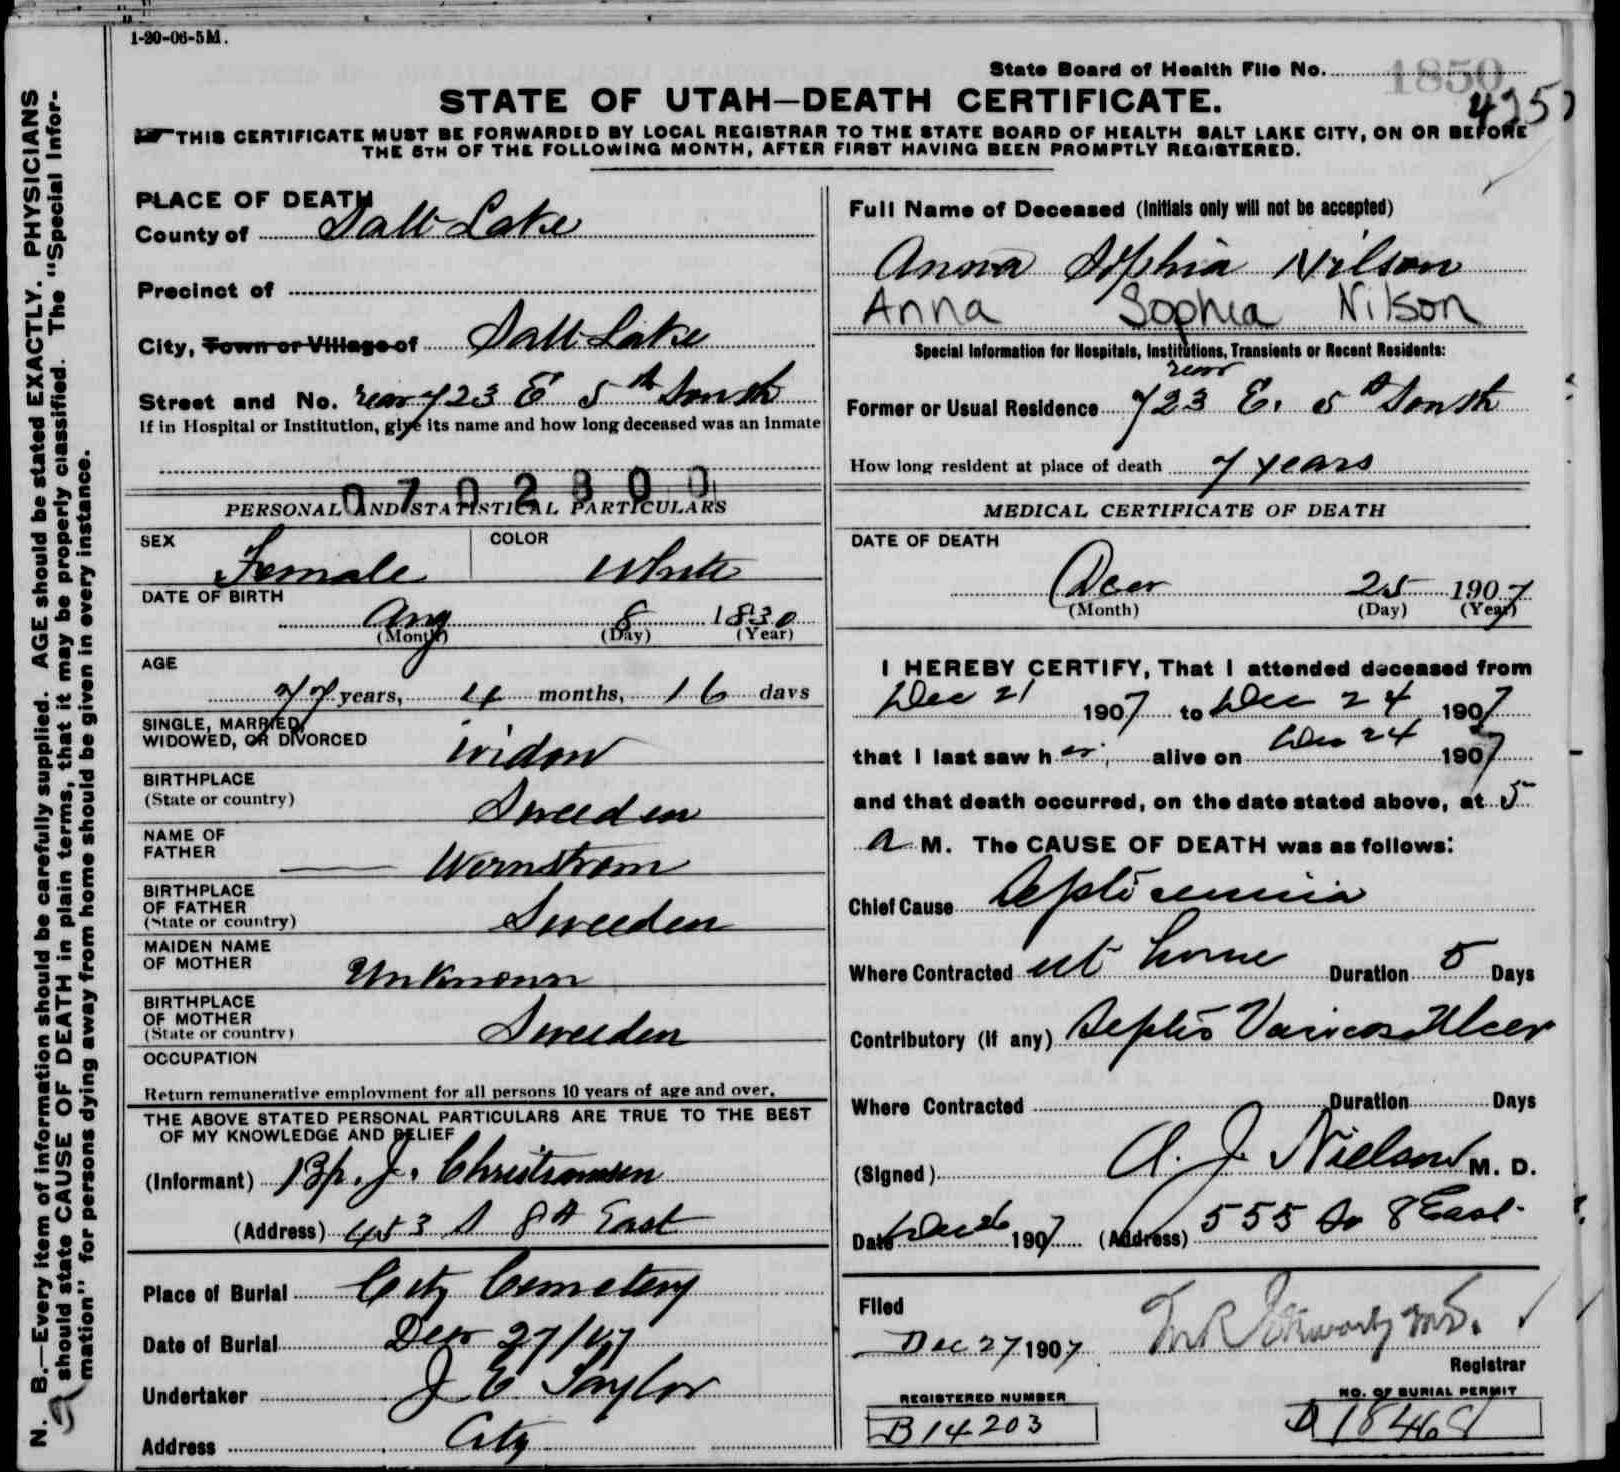 1-20-06-5M.
State Board of Health File No. 1850
425
STATE OF UTAH—DEATH CERTIFICATE.
THIS CERTIFICATE MUST BE FORWARDED BY LOCAL REGISTRAR TO THE STATE BOARD OF HEALTH SALT LAKE CITY, ON OR BEFORE
THE 5TH OF THE FOLLOWING MONTH, AFTER FIRST HAVING BEEN PROMPTLY REGISTERED.
N. B.—Every item of information should be carefully supplied. AGE should be stated EXACTLY. PHYSICIANS
should state CAUSE OF DEATH in plain terms, that it may be properly classified. The "Special Infor-
mation" for persons dying away from home should be given in every instance.
PLACE OF DEATH
County of Salt Lake
Precinct of
City, Town or Village of Salt Lake
Street and No. rear 723 E 5th South
If in Hospital or Institution, give its name and how long deceased was an inmate
0702300
PERSONAL AND STATISTICAL PARTICULARS
SEX Female COLOR White
DATE OF BIRTH
Aug 8 1830
(Month) (Day) (Year)
AGE
77 years, 4 months, 16 days
SINGLE, MARRIED,
WIDOWED, OR DIVORCED Widow
BIRTHPLACE
(State or country) Sweeden
NAME OF
FATHER — Wernstrom
BIRTHPLACE
OF FATHER
(State or country) Sweeden
MAIDEN NAME
OF MOTHER Unknown
BIRTHPLACE
OF MOTHER
(State or country) Sweeden
OCCUPATION
Return remunerative employment for all persons 10 years of age and over.
THE ABOVE STATED PERSONAL PARTICULARS ARE TRUE TO THE BEST
OF MY KNOWLEDGE AND BELIEF
(Informant) Bp. J. Christiansen
(Address) 453 S 8th East
Place of Burial City Cemetery
Date of Burial Dec 27/07
Undertaker J E Taylor
Address City
Full Name of Deceased (Initials only will not be accepted)
Anna Sophia Nilson
Anna Sophia Nilson
Special Information for Hospitals, Institutions, Transients or Recent Residents:
rear
Former or Usual Residence 723 E. 5th South
How long resident at place of death 7 years
MEDICAL CERTIFICATE OF DEATH
DATE OF DEATH
Decr 25 1907
(Month) (Day) (Year)
I HEREBY CERTIFY, That I attended deceased from
Dec 21 1907 to Dec 24 1907
that I last saw her alive on Dec 24 1907
and that death occurred, on the date stated above, at 5
a M. The CAUSE OF DEATH was as follows:
Chief Cause Septicemia
Where Contracted at home Duration 5 Days
Contributory (if any) Septic Varicose Ulcer
Where Contracted Duration Days
(Signed) A. J. Nielson M. D.
Date Dec 26 1907 (Address) 555 So 8 East.
Filed
Dec 27 1907 M.D.
Registrar
REGISTERED NUMBER
B14203
NO. OF BURIAL PERMIT
D 18468